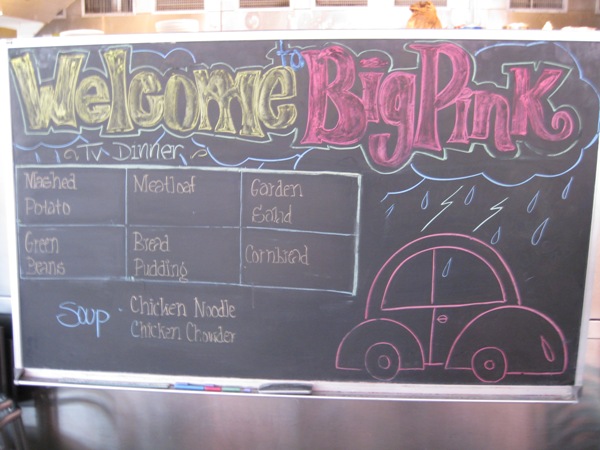 Welcome to Big Pink
~ TV Dinner ~
Mashed Potato
Meatloaf
Garden Salad
Green Beans
Bread Pudding
Cornbread
Soup - Chicken Noodle
Chicken Chowder